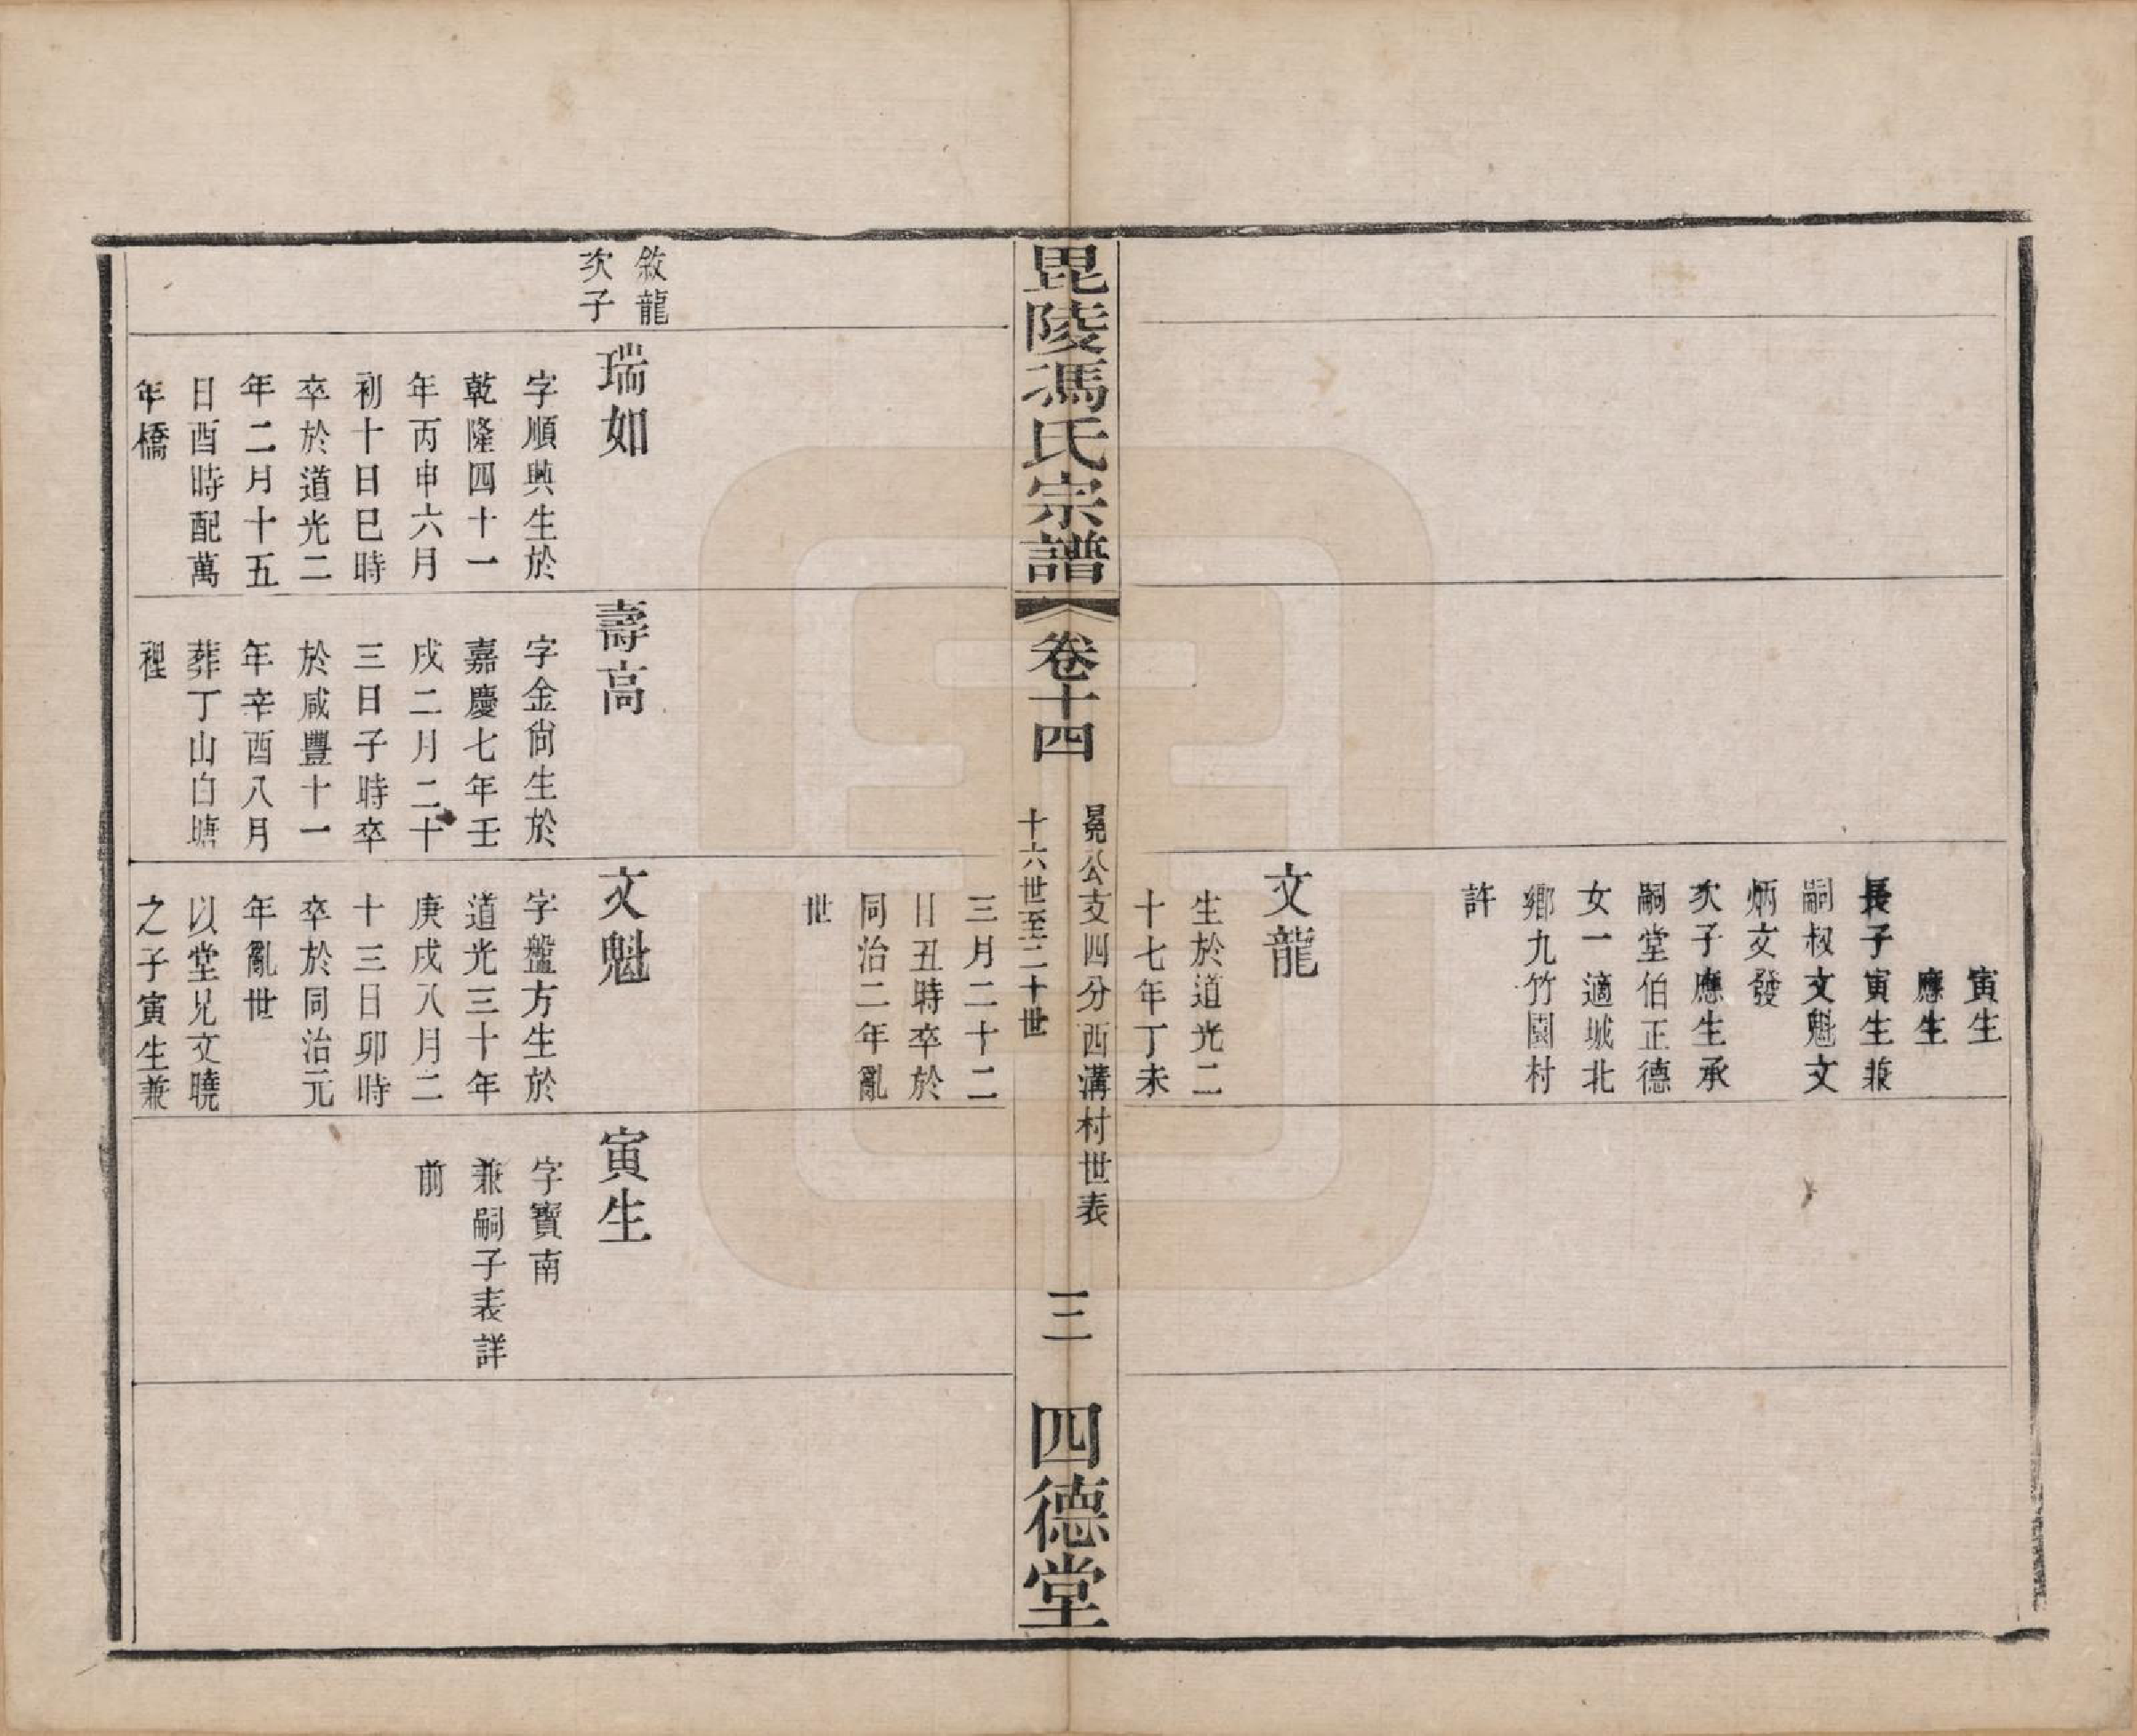 寅生
應生
長子寅生兼
嗣叔文魁文
炳文發
次子應生承
嗣堂伯正德
女一適城北
鄉九竹園村
許
文龍
生於道光二
十七年丁未
毘陵馮氏宗譜
卷十四
晃公支四分西溝村世表
十六世至二十世
三
四德堂
三月二十二
日丑時卒於
同治二年亂
世
敘龍
次子
瑞如
字順興生於
乾隆四十一
年丙申六月
初十日巳時
卒於道光二
年二月十五
日酉時配萬
年橋
壽高
字金尙生於
嘉慶七年壬
戌二月二十
三日子時卒
於咸豐十一
年辛酉八月
葬丁山白塘
裡
文魁
字盤方生於
道光三十年
庚戌八月二
十三日卯時
卒於同治元
年亂世
以堂兄文曉
之子寅生兼
寅生
字寶南
兼嗣子表詳
前